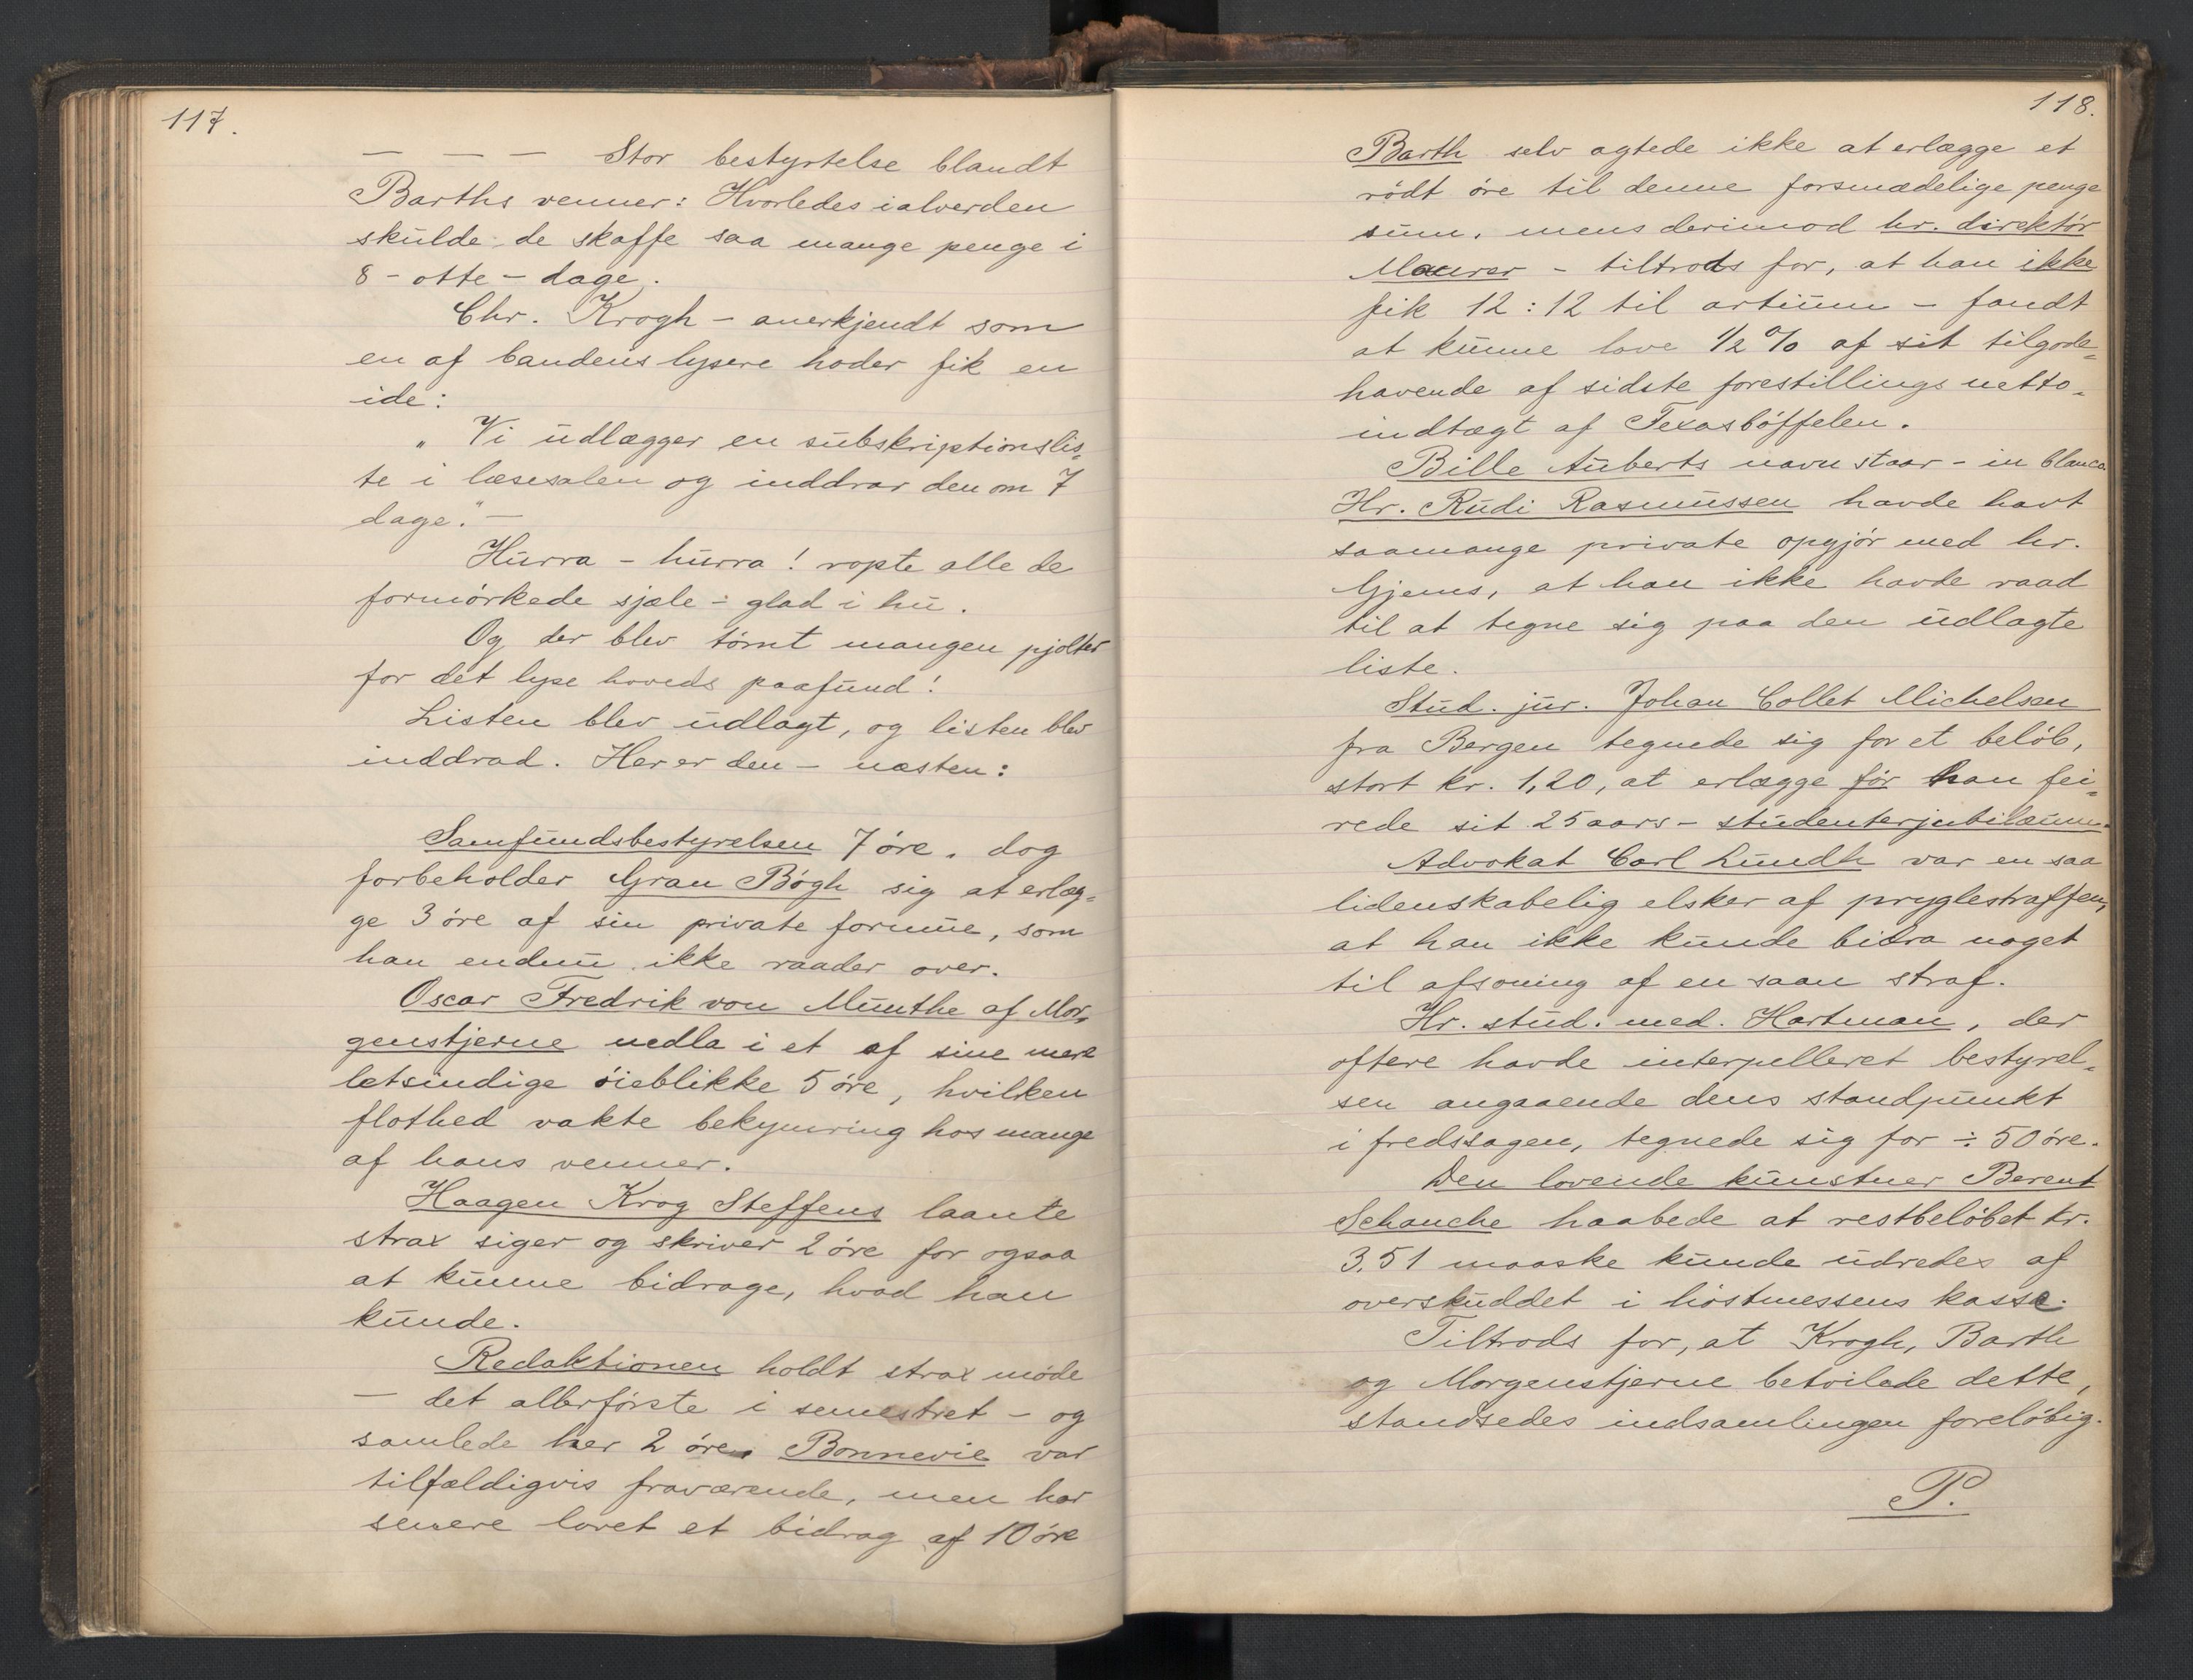 117.
— — — Stor bestyrtelse blandt
Barths venner: Hvorledes ialverden
skulde de skaffe saa mange penge i
8 - otte - dage.
Chr. Krogh - anerkjendt som
en af bandens lysere hoder fik en
ide:
" Vi udlægger en subskriptionslis=
te i læsesalen og inddrar den om 7
dage." —
Hurra - hurra! ropte alle de
formørkede sjæle - glad i hu.
Og der blev tømt mangen pjolter
for det lyse hoveds paafund!
Listen blev udlagt, og listen blev
inddrad. Her er den - næsten:
Samfundsbestyrelsen 7 øre. dog
forbeholder Gran Bøgh sig at erlæg=
ge 3 øre af sin private formue, som
han endnu ikke raader over.
Oscar Fredrik von Munthe af Mor=
genstjerne nedla i et af sine mere
letsindige øieblikke 5 øre, hvilken
flothed vakte bekymring hos mange
af hans venner.
Haagen Krog Steffens laante
strax siger og skriver 2 øre for ogsaa
at kunne bidrage, hvad han
kunde.
Redaktionen holdt strax møde
— det allerførste i semestret - og
samlede her 2 øre. Bonnevie var
tilfældigvis fraværende, men har
senere lovet et bidrag af 10 øre
118.
Barth selv agtede ikke at erlægge et
rødt øre til denne forsmædelige penge
sum, mens derimod hr. direktør
Maurer - tiltrods for, at han ikke
fik 12 : 12 til artium - fandt
at kunne love 1/2 % af sit tilgode=
havende af sidste forestillings netto-
indtægt af Texasbøffelen.
Bille Auberts navn staar - in blanco
Hr. Rudi Rasmussen havde havt
saamange private opgjør med hr.
Gjems, at han ikke havde raad
til at tegne sig paa den udlagte
liste.
Stud. jur. Johan Collet Michelsen
fra Bergen tegnede sig for et beløb,
stort kr. 1,20, at erlægge før han fei=
rede sit 25 aars - studenterjubilæum.
Advokat Carl Lundh var en saa
lidenskabelig elsker af pryglestraffen,
at han ikke kunde bidra noget
til afsoning af en saan straf.
Hr. stud. med. Hartman, der
oftere havde interpelleret bestyrel=
sen angaaende dens standpunkt
i fredssagen, tegnede sig for ÷ 50 øre.
Den lovende kunstner Berent
Schanche haabede at restbeløbet kr.
3,51 maaske kunde udredes af
overskuddet i høstmessens kasse.
Tiltrods for, at Krogh, Barth
og Morgenstjerne betvilede dette,
standsedes indsamlingen foreløbig.
P.